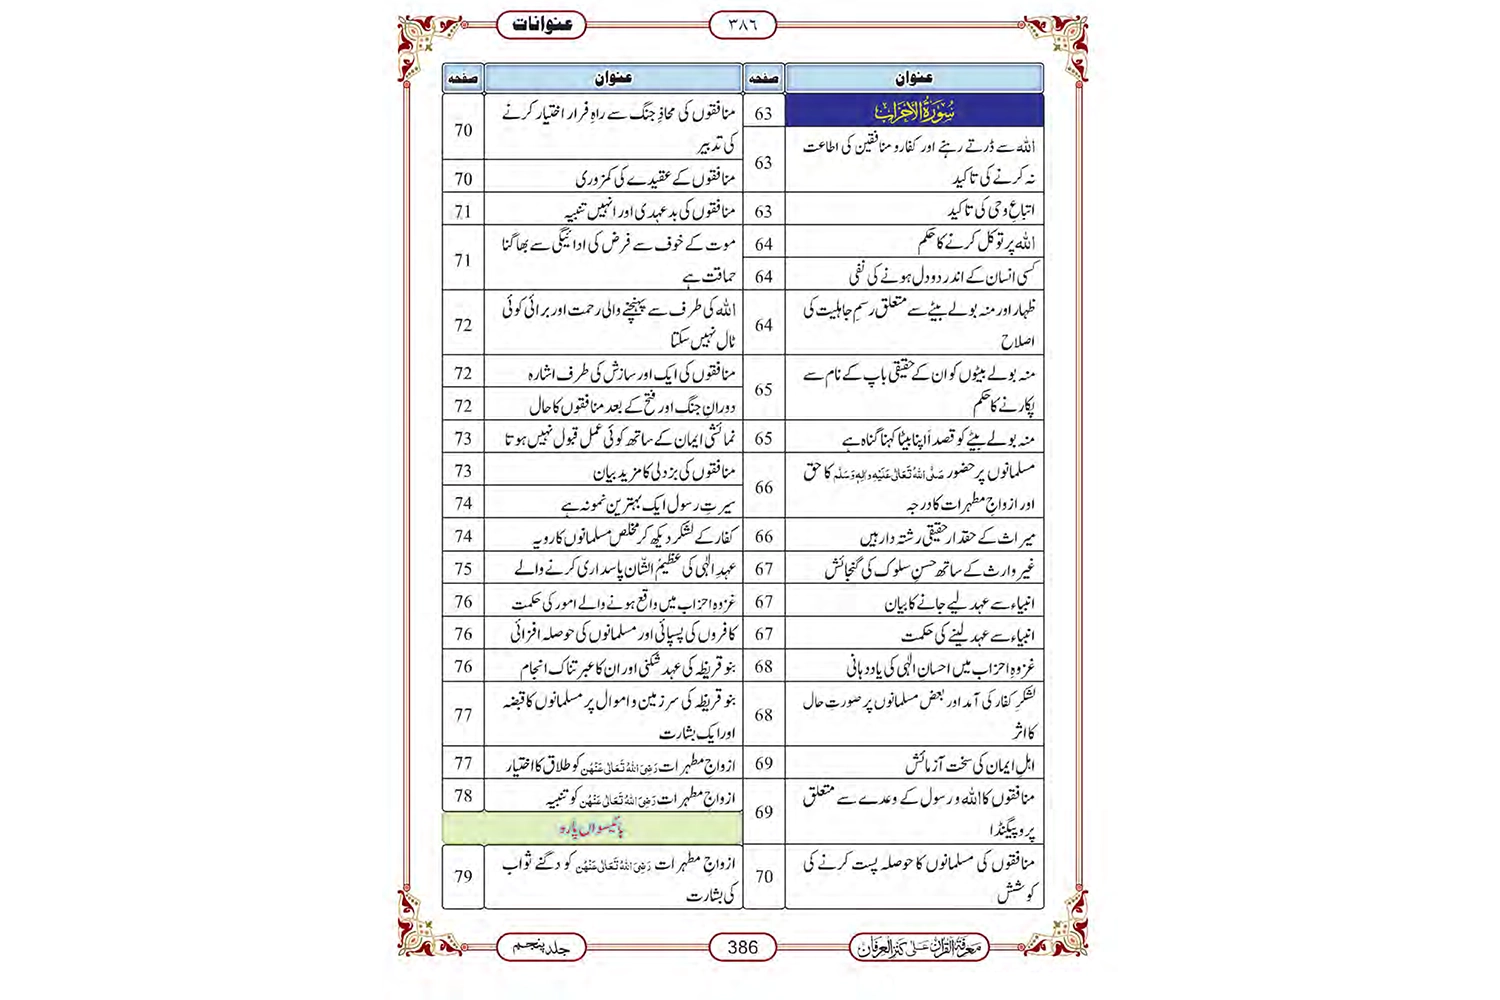 عنوانات
۳۸۶
عنوان صفحہ
سُوْرَۃُ الْاَحْزَاب 63
اللہ سے ڈرتے رہنے اور کفار و منافقین کی اطاعت
نہ کرنے کی تاکید 63
اتباعِ وحی کی تاکید 63
اللہ پر توکل کرنے کا حکم 64
کسی انسان کے اندر دو دل ہونے کی نفی 64
ظہار اور منہ بولے بیٹے سے متعلق رسمِ جاہلیت کی
اصلاح 64
منہ بولے بیٹوں کو ان کے حقیقی باپ کے نام سے
پکارنے کا حکم 65
منہ بولے بیٹے کو قصداً اپنا بیٹا کہنا گناہ ہے 65
مسلمانوں پر حضور صَلَّی اللہُ تَعَالٰی عَلَیْہِ وَاٰلِہٖ وَسَلَّم کا حق
اور ازواجِ مطہرات کا درجہ 66
میراث کے حقدار حقیقی رشتہ دار ہیں 66
غیر وارث کے ساتھ حسنِ سلوک کی گنجائش 67
انبیاء سے عہد لیے جانے کا بیان 67
انبیاء سے عہد لینے کی حکمت 67
غزوہِ احزاب میں احسانِ الٰہی کی یاد دہانی 68
لشکرِ کفار کی آمد اور بعض مسلمانوں پر صورتِ حال
کا اثر 68
اہلِ ایمان کی سخت آزمائش 69
منافقوں کا اللہ و رسول کے وعدے سے متعلق
پروپیگنڈا 69
منافقوں کی مسلمانوں کا حوصلہ پست کرنے کی
کوشش 70
عنوان صفحہ
منافقوں کی محاذِ جنگ سے راہِ فرار اختیار کرنے
کی تدبیر 70
منافقوں کے عقیدے کی کمزوری 70
منافقوں کی بدعہدی اور انہیں تنبیہ 71
موت کے خوف سے فرض کی ادائیگی سے بھاگنا
حماقت ہے 71
اللہ کی طرف سے پہنچنے والی رحمت اور برائی کوئی
ٹال نہیں سکتا 72
منافقوں کی ایک اور سازش کی طرف اشارہ 72
دورانِ جنگ اور فتح کے بعد منافقوں کا حال 72
نمائشی ایمان کے ساتھ کوئی عمل قبول نہیں ہوتا 73
منافقوں کی بزدلی کا مزید بیان 73
سیرتِ رسول ایک بہترین نمونہ ہے 74
کفار کے لشکر دیکھ کر مخلص مسلمانوں کا رویہ 74
عہدِ الٰہی کی عظیمُ الشّان پاسداری کرنے والے 75
غزوہِ احزاب میں واقع ہونے والے امور کی حکمت 76
کافروں کی پسپائی اور مسلمانوں کی حوصلہ افزائی 76
بنو قریظہ کی عہد شکنی اور ان کا عبرتناک انجام 76
بنو قریظہ کی سرزمین و اموال پر مسلمانوں کا قبضہ
اور ایک بشارت 77
ازواجِ مطہرات رَضِیَ اللہُ تَعَالٰی عَنْہُن کو طلاق کا اختیار 77
ازواجِ مطہرات رَضِیَ اللہُ تَعَالٰی عَنْہُن کو تنبیہ 78
بائیسواں پارہ
ازواجِ مطہرات رَضِیَ اللہُ تَعَالٰی عَنْہُن کو دگنے ثواب
کی بشارت 79
معرفۃ القرآن علیٰ کنز العرفان
386
جلد پنجم